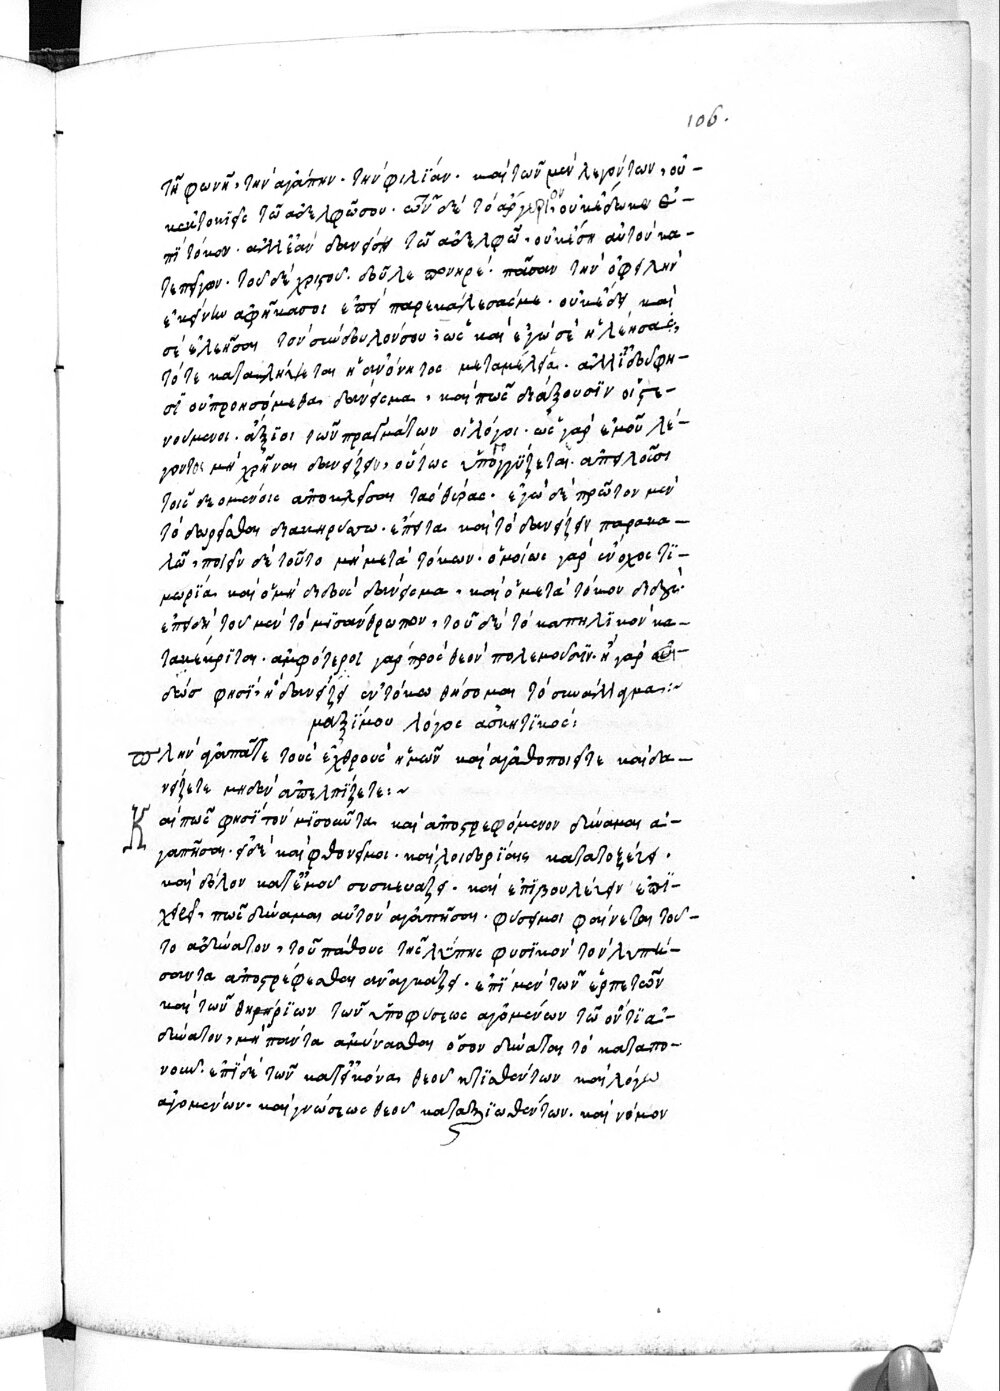 106.
τῆ φωνῆ, τὴν ἀγάπην. τὴν φιλΐαν. καὶ τῶν μὲν λεγόντων, οὐ-
κ ἐκτοκιεῖς τῶ ἀδελφῶ σου. σὺ δὲ τὸ ἀργύριον οὐκ ἔδωκε ἐ-
πῒ τόκον. ἀλλ' ἐὰν δανείση τῶ ἀδελφῶ, οὐκ ἔση αὐτὸν κα-
τεπείγων. τοῦ δὲ χριστοῦ. δοῦλε πονηρέ. πᾶσαν τὴν ὀφειλὴν
ἐκείνην ἀφῆκά σοι ἐπεὶ παρεκάλεσάς με. οὐκ ἔδει καὶ
σὲ ἐλεῆσαι τὸν σύνδουλόν σου, ὡς καὶ ἐγὼ σὲ ἠλέησα,
τότε καταλήψεται ἡ ἀνόνητος μεταμέλεια. ἀλλ' εἰ δουφη-
σῒ οὐ προησόμεθα δανείσμα, καὶ πῶς διάξουσϊν οἱ στε-
νούμενοι. ἄξϊοι τῶν πραγμάτων οἱ λόγοι. ὡς γὰρ ἐμοῦ λέ-
γοντος μὴ χρῆναι δανείζειν, οὕτως ὑπογγύζεται. ἀπειλοῦσι
τοῖς δεομένοις ἀποκλεῖσαι τὰς θύρας. ἐγὼ δὲ πρῶτον μὲν
τὸ δωρεῖσθαι διακηρύττω. ἔπειτα καὶ τὸ δανείζειν παρακα-
λῶ, ποιεῖν δὲ τοῦτο μὴ μετὰ τόκων. ὁμοίως γὰρ ἔνοχος τϊ-
μωρΐα καὶ ὁ μὴ διδοὺς δανείσμα, καὶ ὁ μετὰ τόκου διδοὺς.
ἐπειδὴ τοῦ μὲν τὸ μϊσάνθρωπον, τοῦ δὲ τὸ καπηλϊκὸν κα-
τακέκριται. ἀμφότεροι γὰρ πρὸς θεὸν πολεμοῦσϊν. ἢ γὰρ
δεύς φησῒ, ἢ δανείζει ἐν τόκω θήσομαι τὸ συνάλλαγμα:~
μαξΐμου λόγος ἀσκητϊκὸς:
πλὴν ἀγαπᾶτε τοὺς ἐχθροὺς ἡμῶν καὶ ἀγαθοποιεῖτε καὶ δα-
νείζετε μηδὲν ἀπελπίζετε:~
Καὶ πῶς φησῒ τὸν μϊσοῦντα καὶ ἀποστρεφόμενον δύναμαι ἀ-
γαπῆσαι. εἰ δὲ καὶ φθονεῖ μοι. καὶ λοιδορΐαις κατατοξεύει.
καὶ δόλον κατ' ἐμοῦ συσκευάζει. καὶ ἐπϊβουλεύειν ἐπϊ-
χειρεῖ, πῶς δύναμαι αὐτὸν ἀγαπῆσαι. φύσει μοι φαίνεται τοῦ-
το ἀδύνατον, τοῦ πάθους τῆς λύπης φυσϊκὸν τὸν λυπή-
σαντα ἀποστρέφεσθαι ἀναγκάζει. ἐπῒ μὲν τῶν ἑρπετῶν
καὶ τῶν θηρΐων τῶν ὑπὸ φύσεως ἀγομένων τῶ ὄντϊ ἀ-
δύνατον, μὴ πάντα ἀμύνασθαι ὅσον δύναται τὸ καταπο-
νοῦν. ἐπῒ δὲ τῶν κατ' εἰκόνα θεοῦ κτϊσθέντων καὶ λόγω
ἀγομένων. καὶ γνώσεως θεοῦ καταξϊωθέντων. καὶ νόμον